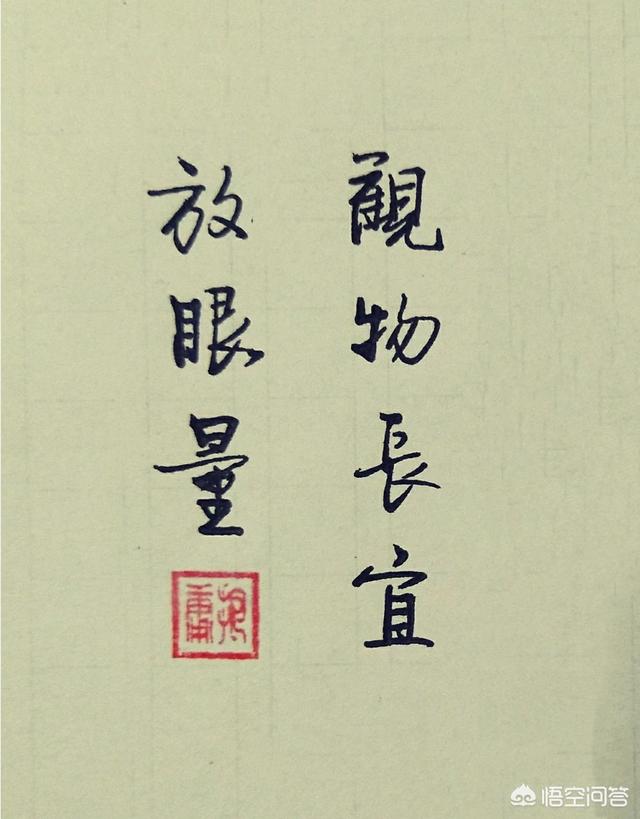 觀物長宜
放眼量
悟空问答